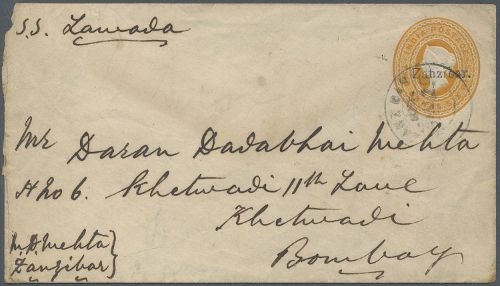 S.S. Zamada
INDIA POSTAGE
Zanzibar.
Mr Daran Dadabhai Mehta
H No 6. Khetwadi 11th Lane
Khetwadi
Bombay
M. D. Mehta
Zanzibar